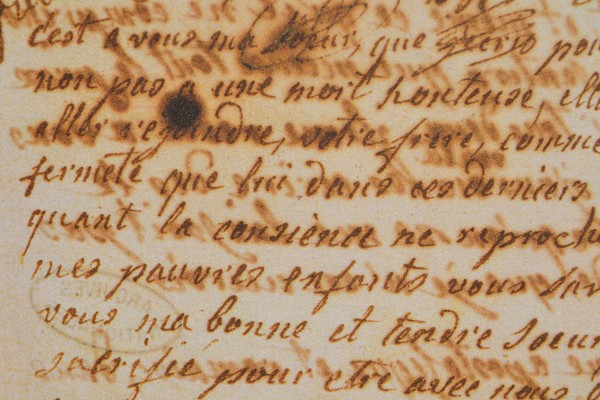 c'est a vous ma soeur, que j'ecris pou
non pas a une mort honteuse, elle
aller rejoindre, votre frere, comme
fermeté que lui dans ces derniers
quant la consience ne reproche
mes pauvres enfants vous sav
vous ma bonne et tendre soeur
sacrifié pour etre avec nous
ARCHIVES